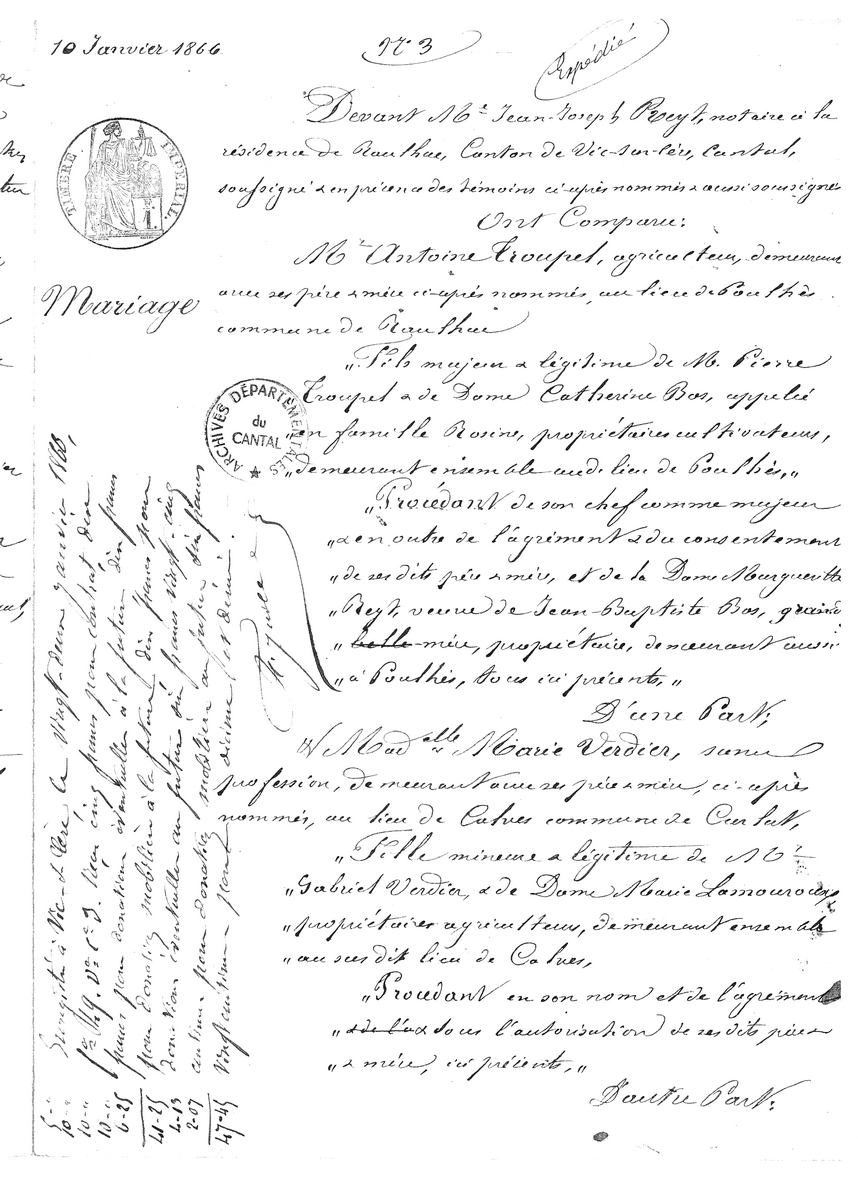 10 Janvier 1866
N° 3
Expédié
TIMBRE IMPÉRIAL
Mariage
ARCHIVES DÉPARTEMENTALES du CANTAL
Devant Me Jean-Joseph Reyt, notaire à la
résidence de Raulhac, Canton de Vic-sur-Cère, Cantal,
soussigné & en présence des témoins ci-après nommés & aussi soussignés
Ont Comparu:
Mr Antoine Troupel, agriculteur, demeurant
avec ses père & mère ci-après nommés, au lieu de Poulhès
commune de Raulhac
„Fils majeur & légitime de M. Pierre
Troupel & de Dame Catherine Bos, appelée
„en famille Rosine, propriétaires cultivateurs,
„demeurant ensemble audit lieu de Poulhès,„
„Procédant de son chef comme majeur
„& en outre de l'agrément & du consentement
„de ses dits père & mère, et de la Dame Marguerite
„Reyt, veuve de Jean-Baptiste Bos, grand
„belle-mère, propriétaire, demeurant aussi
„à Poulhès, tous ici présents,„
D'une Part;
& Madelle Marie Verdier, sans
profession, demeurant avec ses père & mère, ci-après
nommés, au lieu de Calves commune de Carlat,
„Fille mineure & légitime de Mr
„Gabriel Verdier, & de Dame Marie Lamouroux
„propriétaires agriculteurs, demeurant ensemble
„au susdit lieu de Calves,
„Procédant en son nom et de l'agrément
„& de l'a & sous l'autorisation de ses dits père
„& mère, ici présents,„
D'autre Part:
Enregistré à Vic-s-Cère le vingt-deux janvier 1866,
fo 149. Vo Ce 3. Reçu cinq francs pour contrat, dix
francs pour donation éventuelle à la future, dix francs
pour donation mobilière à la future, dix francs pour
donation éventuelle au futur, six francs vingt-cinq
centimes pour donation mobilière au futur, six francs
vingt centimes pour décime et demi.
5-"
10-"
10-"
10-"
6-25
41-25
4-13
2-07
47-45